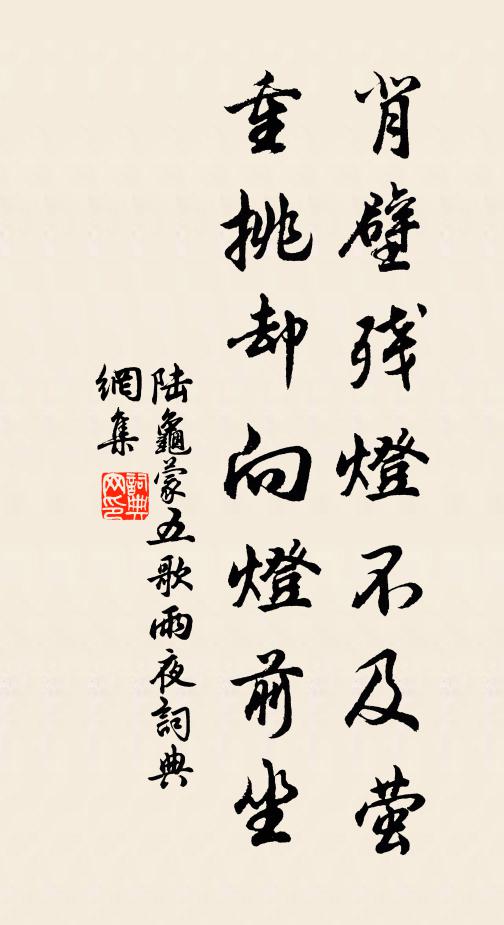 背壁残燈不及萤
重挑却向燈前坐
陆龜蒙五歌雨夜詞典
網集
詞典
网印